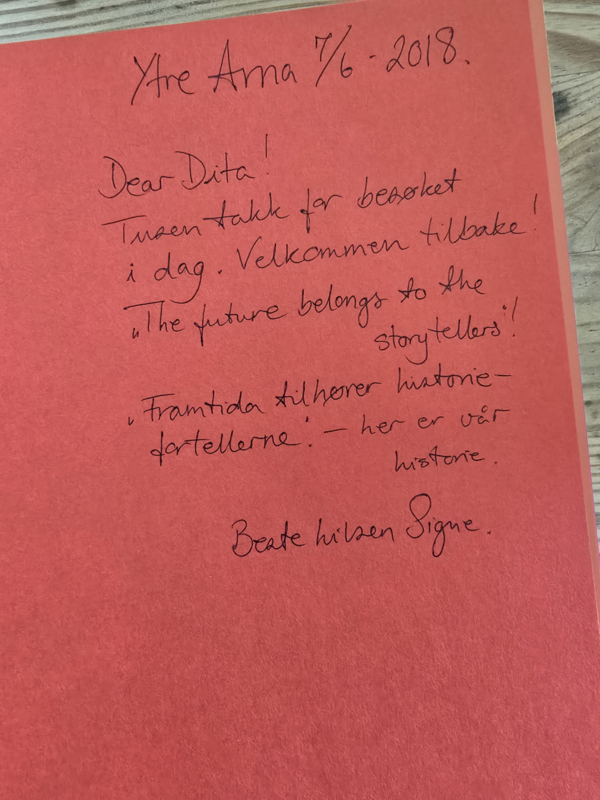 Ytre Arna 7/6 - 2018.
Dear Dita!
Tusen takk for besøket
i dag. Velkommen tilbake!
"The future belongs to the
storytellers"!
"Framtida tilhører historie-
fortellerne". - her er vår
historie.
Beste hilsen Signe.